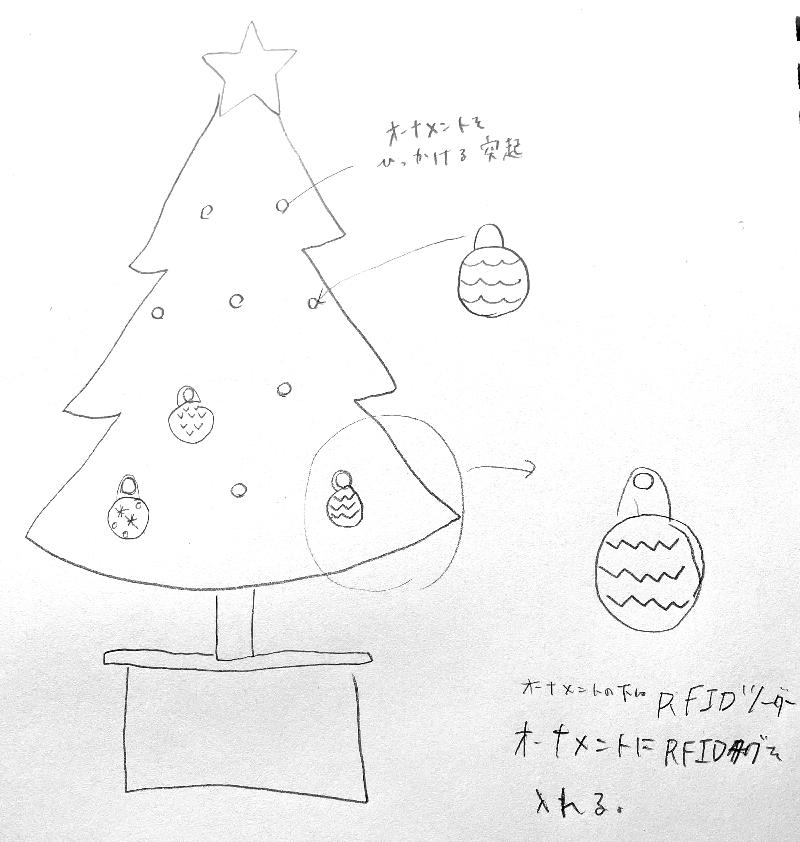 オーナメントを
ひっかける突起
オーナメントの下に RFIDリーダー
オーナメントにRFIDタグを
入れる。